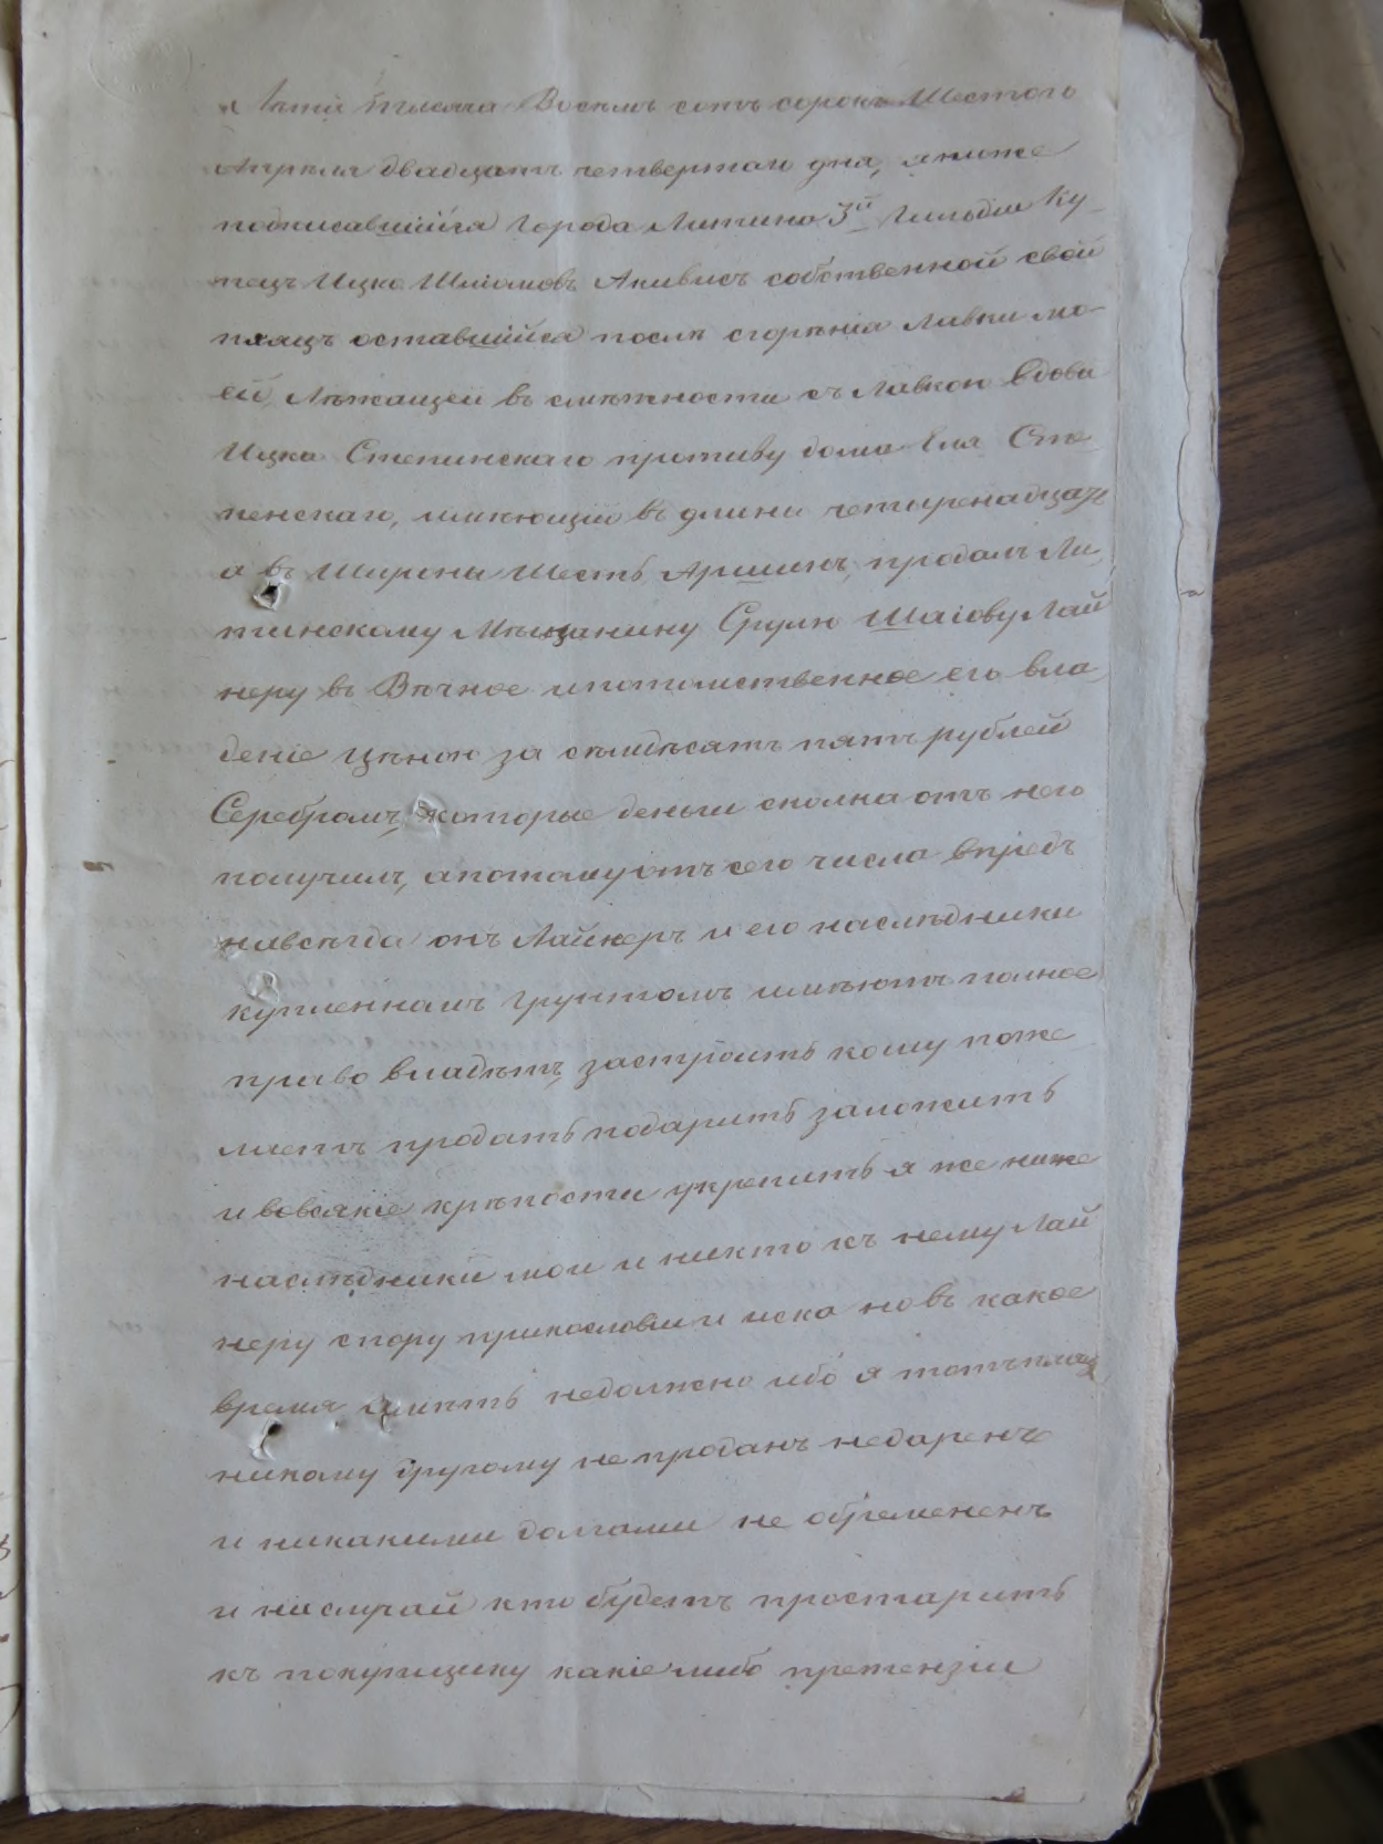 Лѣта тысяча Восемь сотъ сорокъ Шестого
Апреля двадцать четвертаго дня, я ниже
подписавшійся Города Литина 3й Гильдіи Ку-
пецъ Ицко Шліомовъ Акивисъ собственной свой
пляцъ оставшійся послѣ сгорѣнія Лавки мо-
ей, Лѣжащей въ смѣжности съ Лавкою вдовы
Ицка Степинскаго противу дома Еля Сте
пенскаго, имѣющій въ длины четыренадцать
а въ Ширины Шесть Аршинъ, продалъ Ли
тинскому Мѣщанину Срулю Шаіову Лай
неру въ Вѣчное и потомственное его вла
деніе цѣною за сѣмдѣсятъ пять рублей
Серебромъ, которые деньги сполна отъ него
получилъ, а потому отъ сего числа впредъ
навсѣгда онъ Лайнеръ и его наслѣдники
купленнымъ грунтомъ имѣютъ полное
право владѣть, застроить кому поже
лаетъ продать подарить заложить
и вовсякіе крѣпости укрепить я же ниже
наслѣдники мои и никто къ нему Лай
неру спору прикословіи и иска но въ какое
время имѣть недолжно ибо я тотъ пляцъ
никому другому не проданъ недаренъ
и никакими долгами не обремененъ
и наслучай кто будетъ простарить
къ покупщику какіе либо претензіи